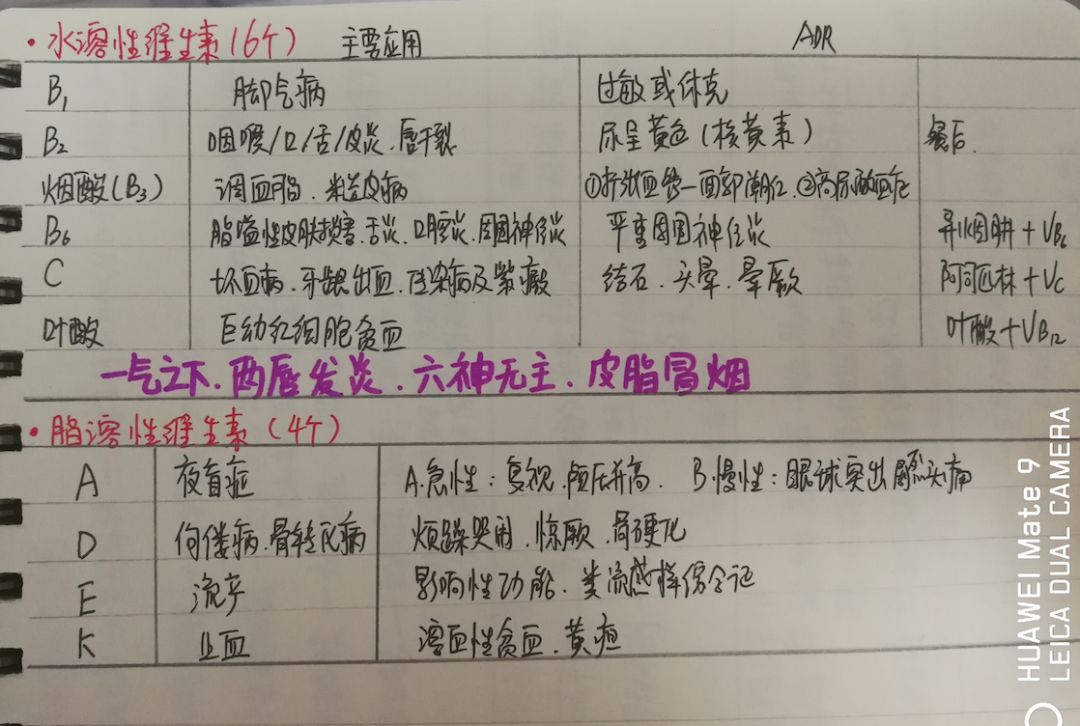 ·水溶性维生素(6个) 主要应用 ADR
B₁ 脚气病 过敏或休克
B₂ 咽喉/口/舌/皮炎.唇干裂 尿呈黄色(核黄素) 餐后.
烟酸(B₃) 调血脂.糙皮病 ①扩张血管—面部潮红.②高尿酸血症
B₆ 脂溢性皮肤损害.舌炎.口腔炎.周围神经炎 严重周围神经炎 异烟肼+VB₆
C 坏血病.牙龈出血.传染病及紫癜 结石.头晕.晕厥 阿司匹林+Vc
叶酸 巨幼红细胞贫血 叶酸+VB₁₂
一气之下.两唇发炎.六神无主.皮脂冒烟
·脂溶性维生素(4个)
A 夜盲症 A.急性:复视.颅压升高. B.慢性:眼球突出 剧烈头痛
D 佝偻病.骨转化病 烦躁哭闹.惊厥.骨硬化
E 流产 影响性功能.类流感样综合征
K 止血 溶血性贫血.黄疸
HUAWEI Mate 9
LEICA DUAL CAMERA